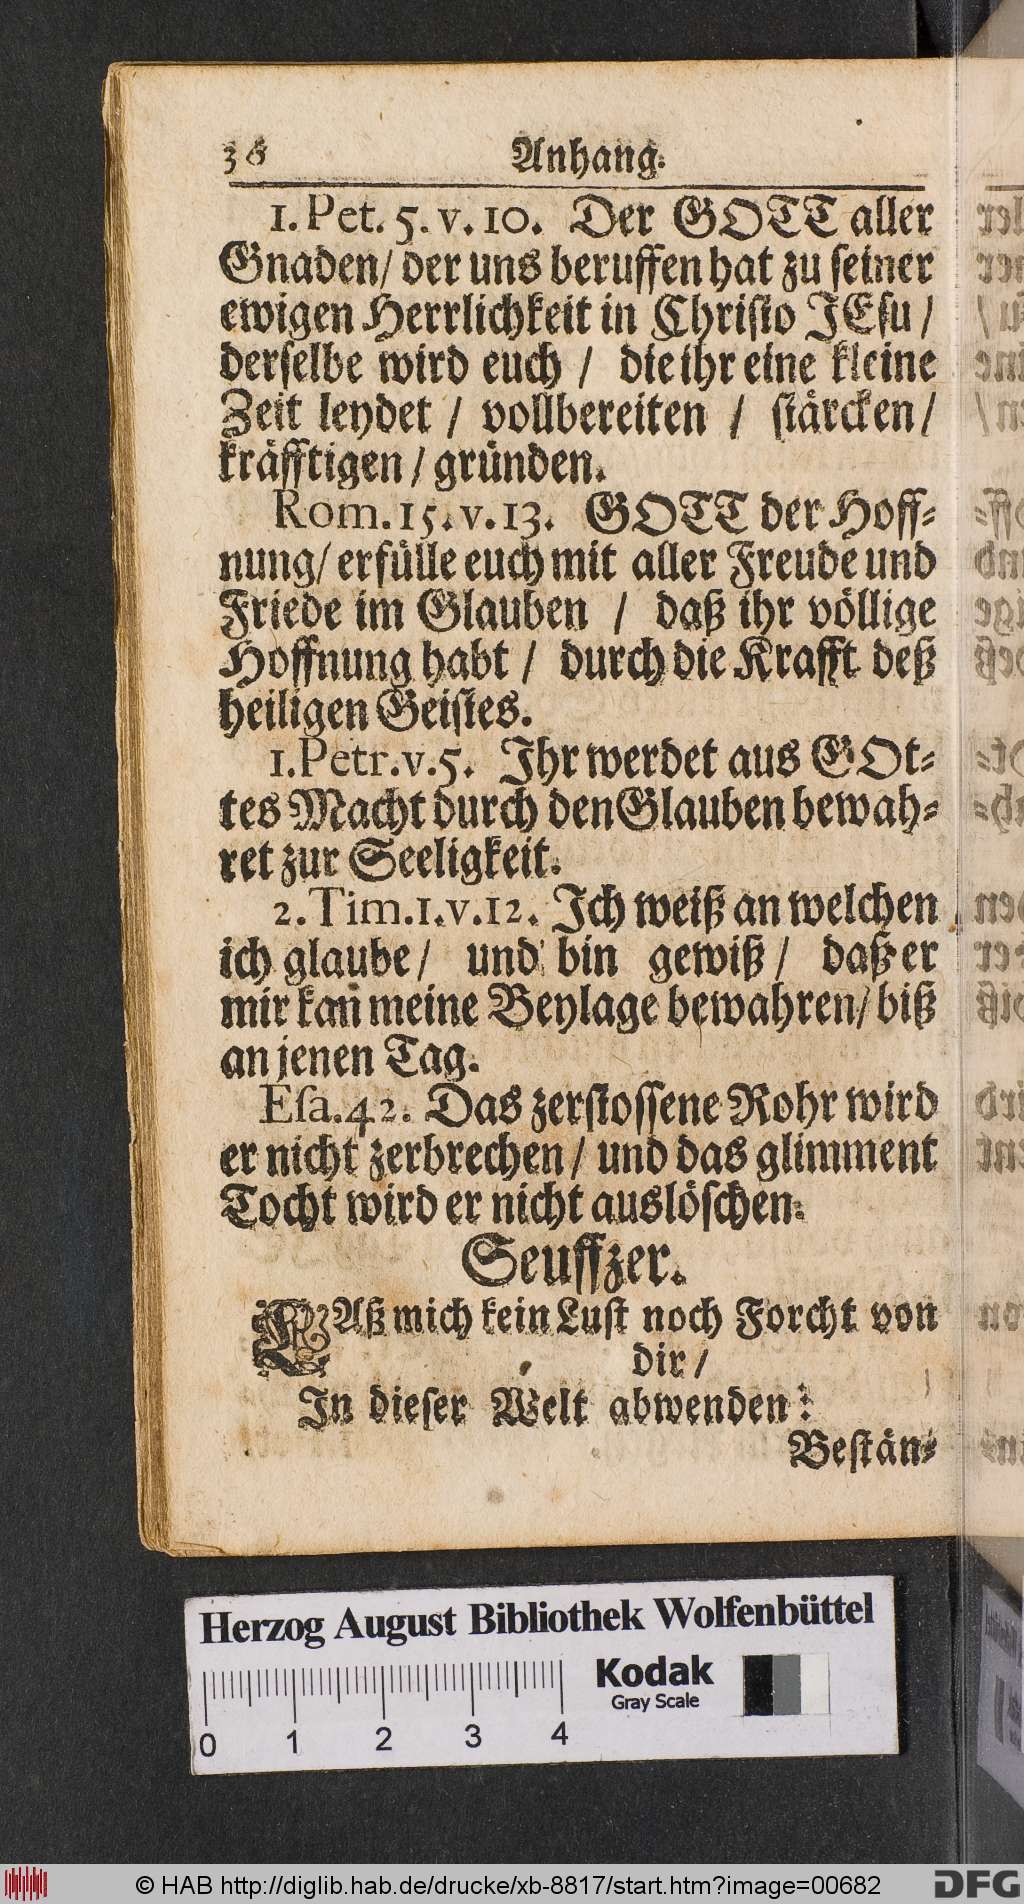 36 Anhang.
1. Pet. 5. v. 10. Der GOTT aller
Gnaden/ der uns beruffen hat zu ſeiner
ewigen Herrlichkeit in Chriſto JEſu /
derſelbe wird euch / die ihr eine kleine
Zeit leydet / vollbereiten / ſtärcken/
kräfftigen / gründen.
Rom. 15. v. 13. GOTT der Hoff-
nung/ erfülle euch mit aller Freude und
Friede im Glauben / daß ihr völlige
Hoffnung habt / durch die Krafft deß
heiligen Geiſtes.
1. Petr. v. 5. Ihr werdet aus GOt-
tes Macht durch den Glauben bewah-
ret zur Seeligkeit.
2. Tim. 1. v. 12. Ich weiß an welchen
ich glaube / und bin gewiß / daß er
mir kan meine Beylage bewahren/ biß
an jenen Tag.
Eſa. 42. Das zerſtoſſene Rohr wird
er nicht zerbrechen / und das glimment
Tocht wird er nicht auslöſchen.
Seuffzer.
LAß mich kein Luſt noch Forcht von
dir /
In dieſer Welt abwenden:
Beſtän-
Herzog August Bibliothek Wolfenbüttel
Kodak
Gray Scale
0 1 2 3 4
© HAB http://diglib.hab.de/drucke/xb-8817/start.htm?image=00682
DFG